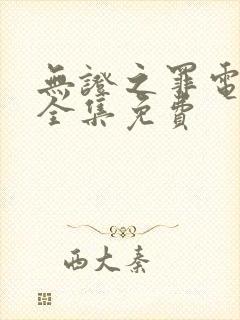 無證之罪電
全集免費
西大秦